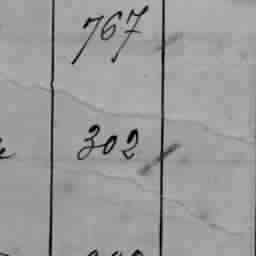 767
302